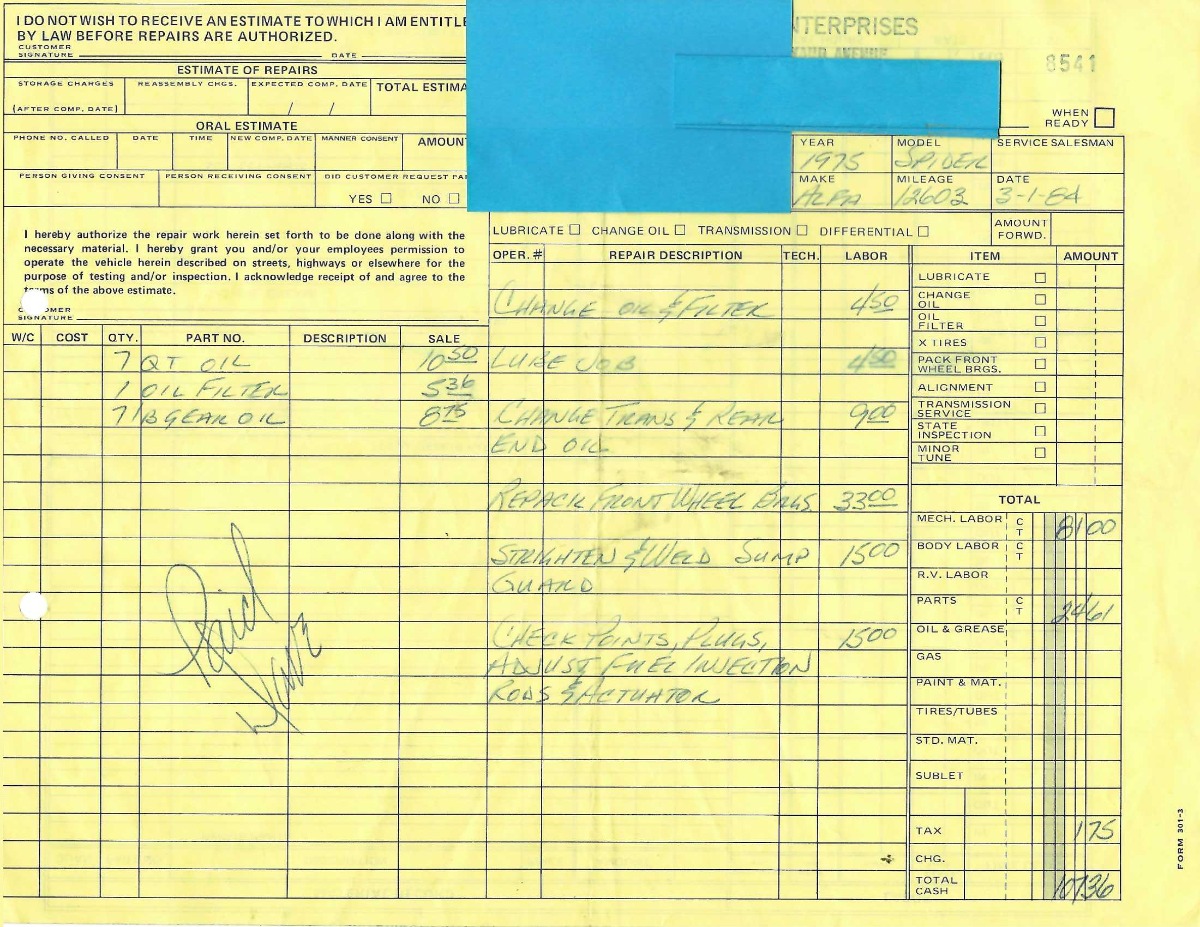 I DO NOT WISH TO RECEIVE AN ESTIMATE TO WHICH I AM ENTITLE
BY LAW BEFORE REPAIRS ARE AUTHORIZED.
CUSTOMER
SIGNATURE DATE
ESTIMATE OF REPAIRS
STORAGE CHARGES REASSEMBLY CHGS. EXPECTED COMP. DATE TOTAL ESTIMA
(AFTER COMP. DATE) / /
ORAL ESTIMATE
PHONE NO. CALLED DATE TIME NEW COMP. DATE MANNER CONSENT AMOUN
PERSON GIVING CONSENT PERSON RECEIVING CONSENT DID CUSTOMER REQUEST PA
YES NO
NTERPRISES
AVENUE
8541
WHEN
READY
YEAR MODEL SERVICE SALESMAN
1975 SPIDER
MAKE MILEAGE DATE
ALFA 12603 3-1-84
I hereby authorize the repair work herein set forth to be done along with the
necessary material. I hereby grant you and/or your employees permission to
operate the vehicle herein described on streets, highways or elsewhere for the
purpose of testing and/or inspection. I acknowledge receipt of and agree to the
terms of the above estimate.
SIGNATURE
LUBRICATE CHANGE OIL TRANSMISSION DIFFERENTIAL AMOUNT
FORWD.
W/C COST QTY. PART NO. DESCRIPTION SALE
7 QT OIL 10 50
1 OIL FILTER 5 36
7 LB GEAR OIL 8 75
Paid
OPER. # REPAIR DESCRIPTION TECH. LABOR
CHANGE OIL & FILTER 4 50
LUBE JOB 4 50
CHANGE TRANS & REAR 9 00
END OIL
REPACK FRONT WHEEL BRGS. 33 00
STRIGHTEN & WELD SUMP 15 00
GUARD
CHECK POINTS, PLUGS, 15 00
ADJUST FUEL INJECTION
RODS & ACTUATOR
ITEM AMOUNT
LUBRICATE
CHANGE
OIL
OIL
FILTER
X TIRES
PACK FRONT
WHEEL BRGS.
ALIGNMENT
TRANSMISSION
SERVICE
STATE
INSPECTION
MINOR
TUNE
TOTAL
MECH. LABOR C T 81 00
BODY LABOR C T
R.V. LABOR
PARTS C T 24 61
OIL & GREASE
GAS
PAINT & MAT.
TIRES/TUBES
STD. MAT.
SUBLET
TAX 1 75
CHG.
TOTAL
CASH 107 36
FORM 301-3